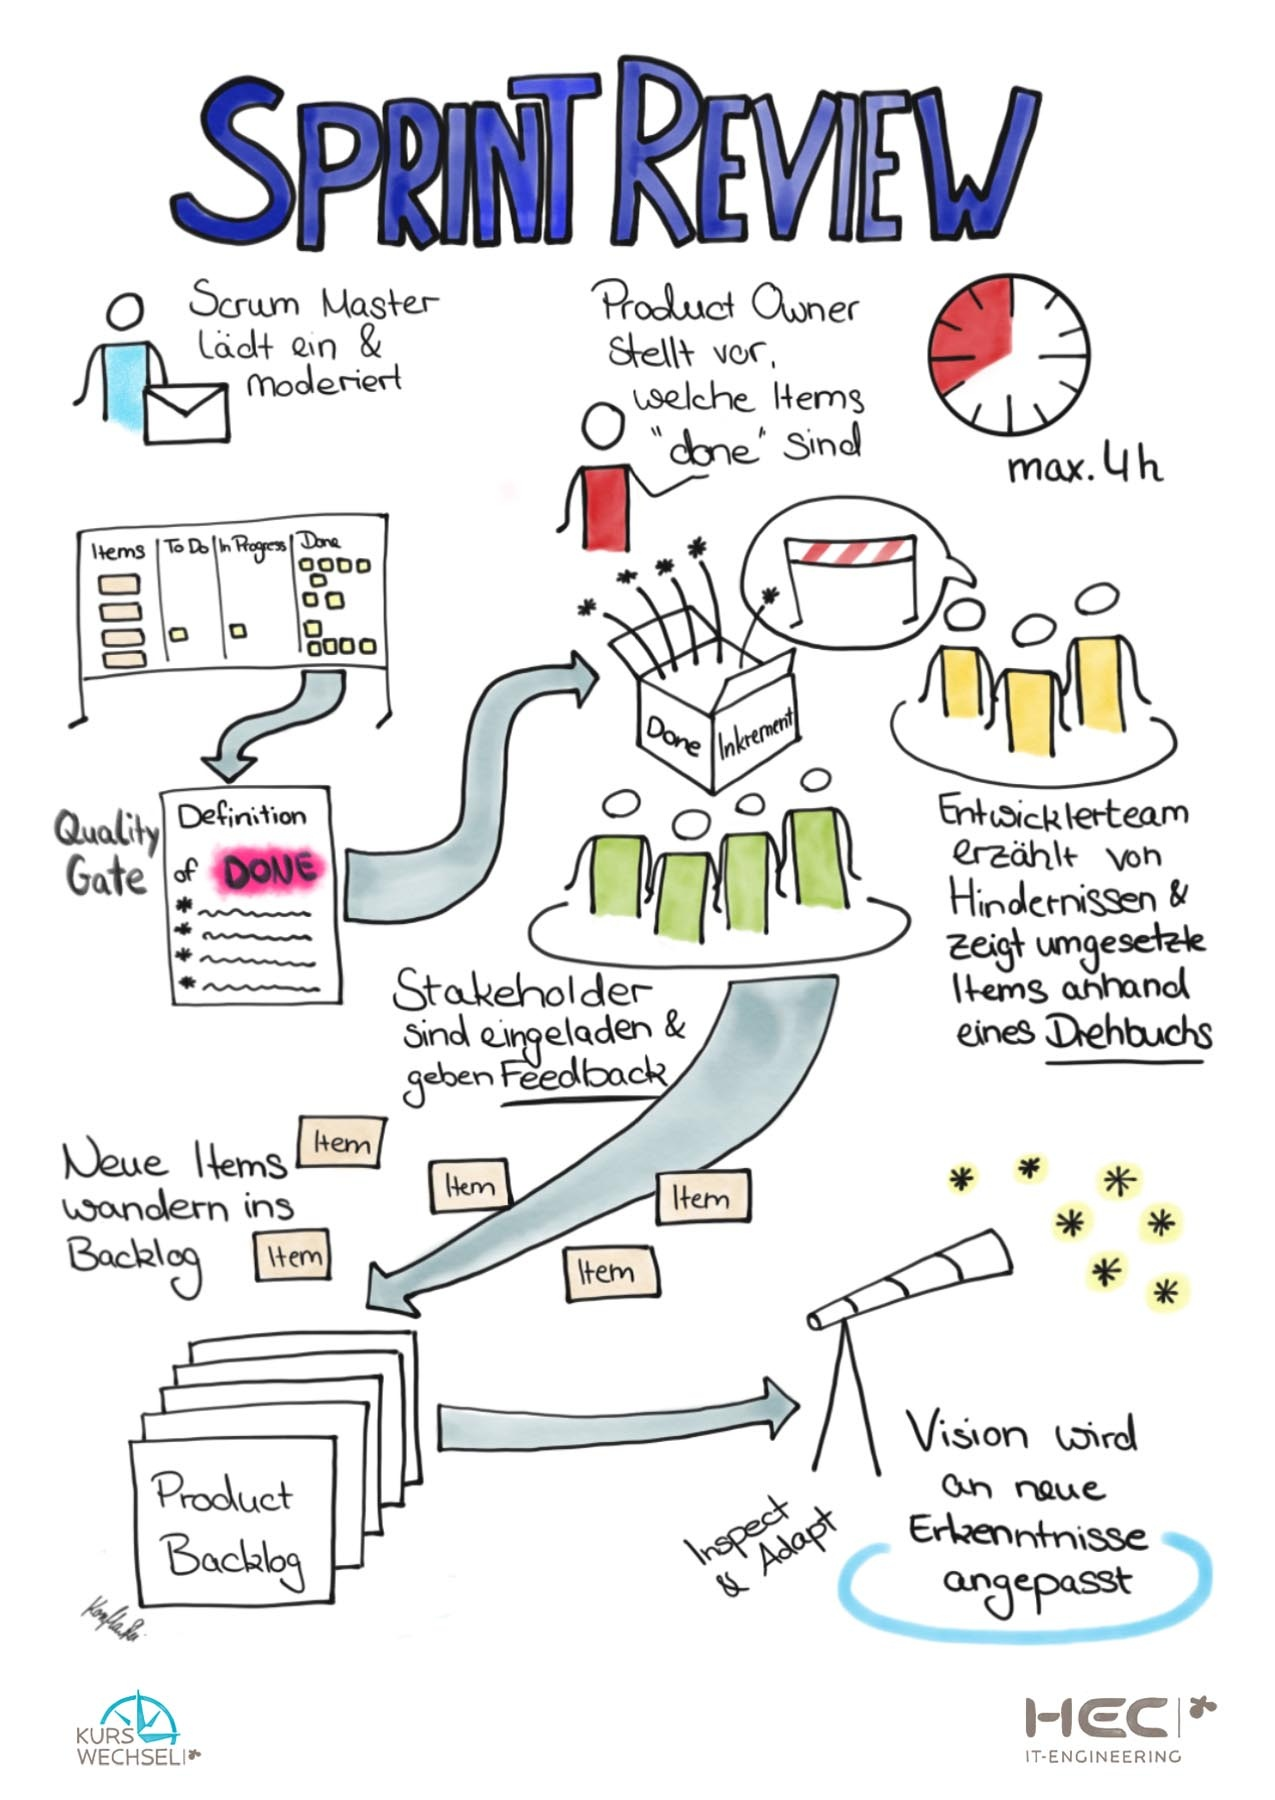 SPRINT REVIEW
Scrum Master
lädt ein &
moderiert
Product Owner
stellt vor,
welche Items
"done" sind
max. 4h
Items
To Do
In Progress
Done
Quality
Gate
Definition
of DONE
Done
Inkrement
Entwicklerteam
erzählt von
Hindernissen &
zeigt umgesetzte
Items anhand
eines Drehbuchs
Stakeholder
sind eingeladen &
geben Feedback
Neue Items
wandern ins
Backlog
Item
Item
Item
Item
Item
Product
Backlog
Inspect
& Adapt
Vision wird
an neue
Erkenntnisse
angepasst
KURS
WECHSEL
HEC
IT-ENGINEERING